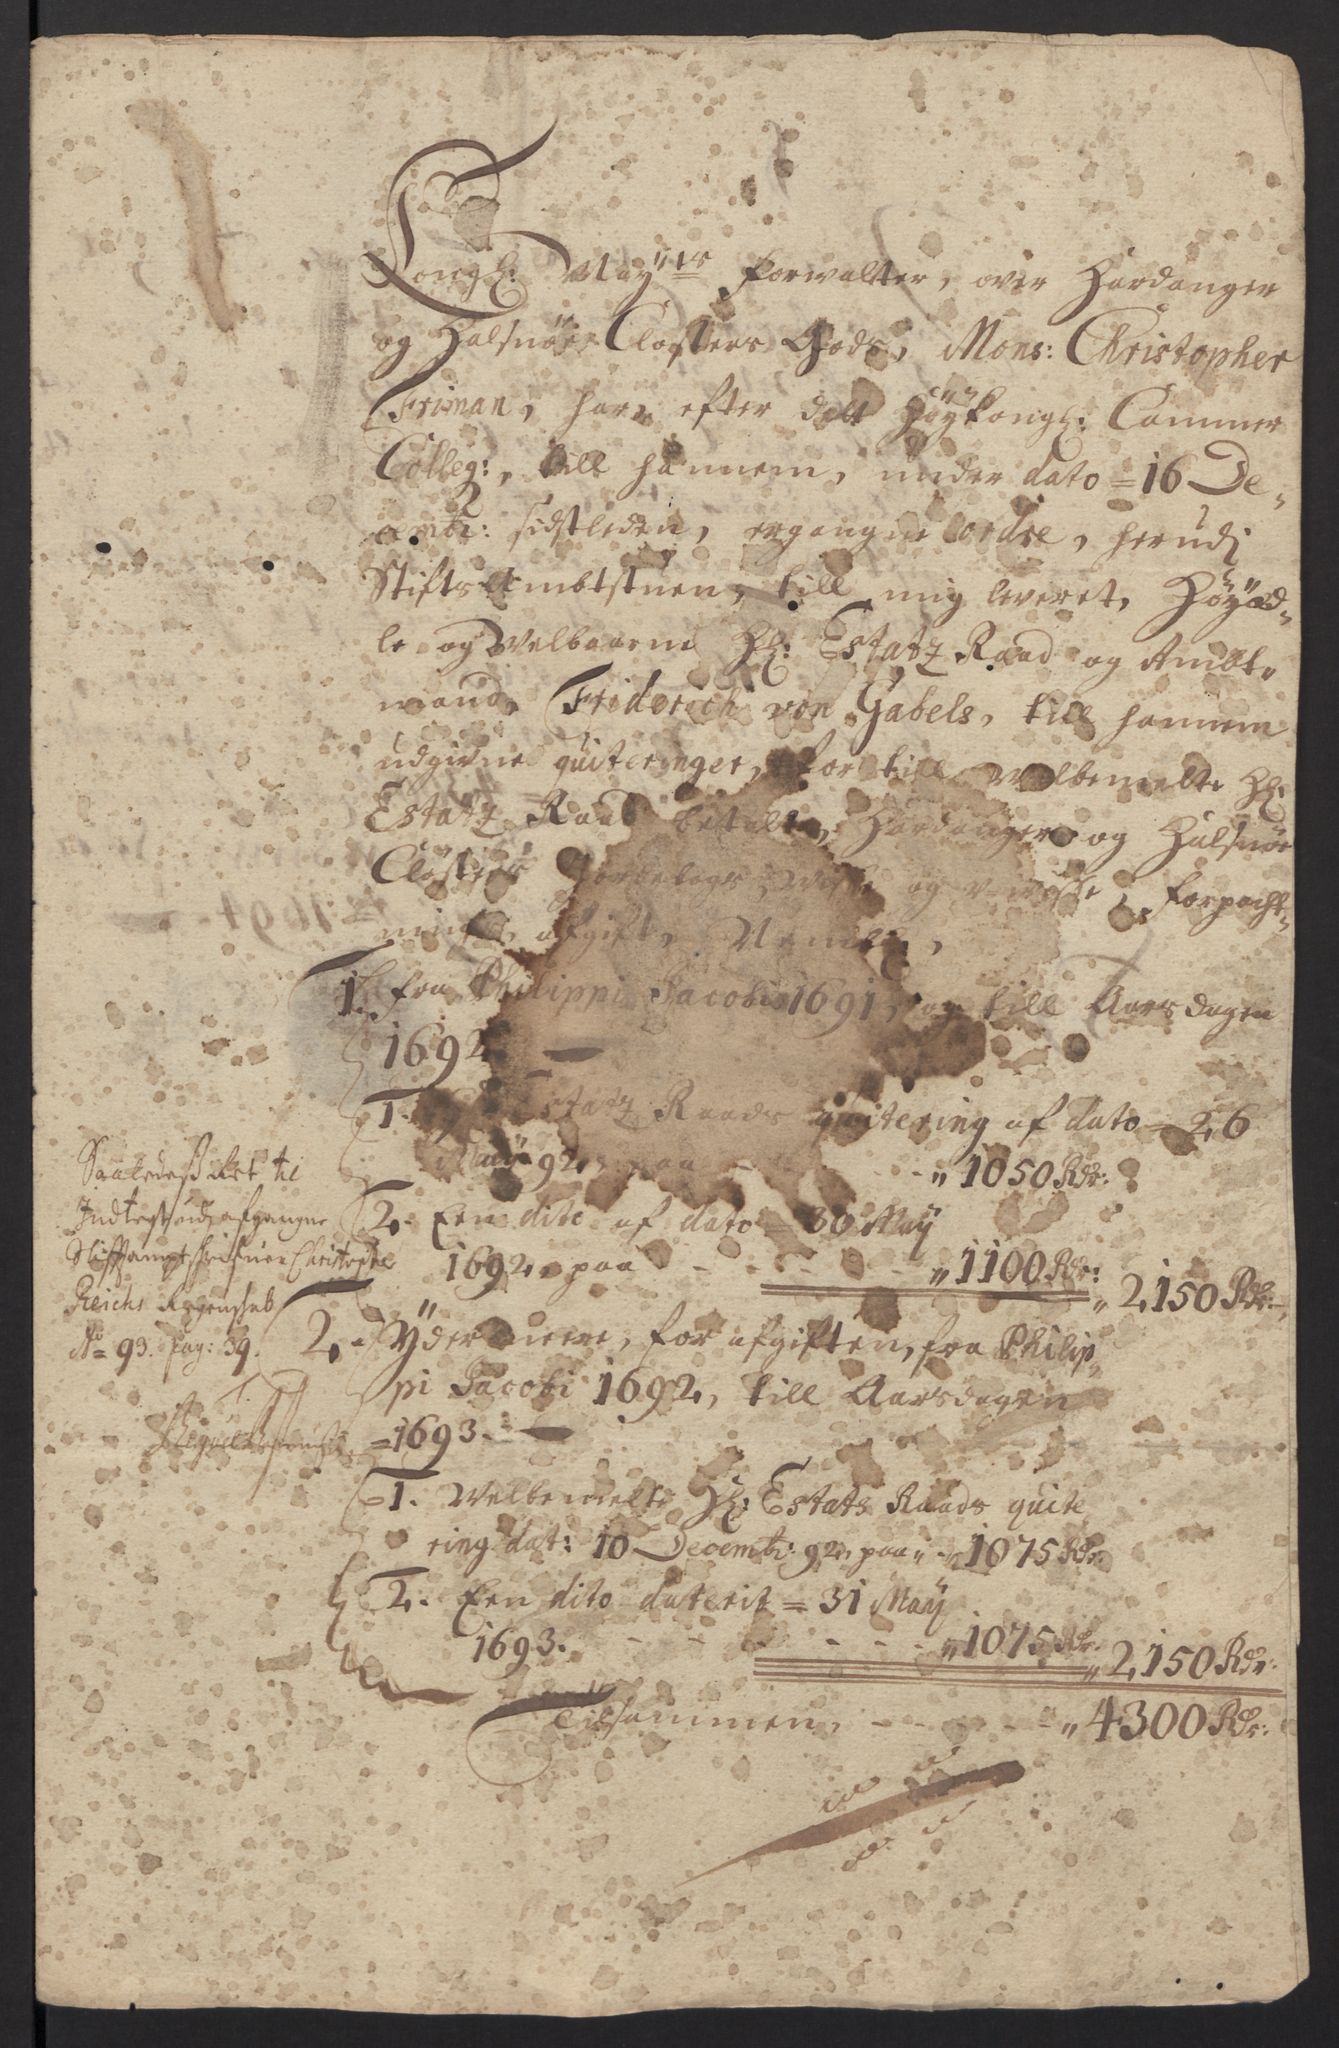 Kongl: May:ts forwalter, over Hardanger
og Halsnöe Closters Gods, Mons: Christopher
Friman, har efter dett höykongl: Cammer
Colleg:, till hannem, under dato = 16 De-
cembr: sidstleden, ergangne ordre, herudi
Stifts Ambtstuen, till mig leveret, Höyæd-
le og Velbaarne Hr: Estatz Raad og Ambt-
mand, Friderich von Gabels, till hannem
udgivne quiteringer, for till velbemelte Hr:
Estatz Raad betalte, Hardanger og Halsnöe
Closters Jordebogs, visse og uvisse, forpacht-
nings afgift, Nemlig,
1. fra Philippi Jacobi 1691, og till Aarsdagen
1692
1. Estatz Raads quitering af dato = 26
May 92, paa - - - " 1050 Rdr:
2. Een dito af dato = 30 May
1692, paa - - - " 1100 Rdr: " 2150 Rdr:
2. Ydermeere, for afgiften, fra Philip-
pi Jacobi 1692, till Aarsdagen
= 1693.
1. Velbemelte Hr: Estats Raads quite
ring dat: 10 Decembr: 92, paa - " 1075 Rdr:
2. Een dito daterit = 31 May
1693. - - - " 1075 Rdr: " 2150 Rdr:
Tilsammen, - - - " 4300 Rdr:
Saaledeß ret til
Indtegt udj afgangne
Stifftamptschrifuer Christopher
Reichs Regenschab
No 93. pag: 39.